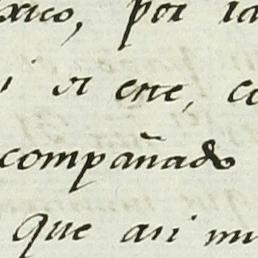 xico, por la
i si este, co
compañado
que asi mi